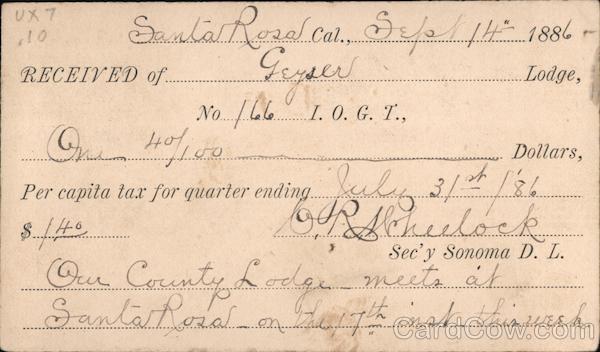 UX7
.10
Santa Rosa Cal., Sept 14" 1886
RECEIVED of Geyser Lodge,
No 166 I. O. G. T.,
One 40/100 Dollars,
Per capita tax for quarter ending July 31st /86
$ 1.40 O. R. Wheelock
Sec'y Sonoma D. L.
Our County Lodge meets at
Santa Rosa on the 17th inst this week
CardCow.com